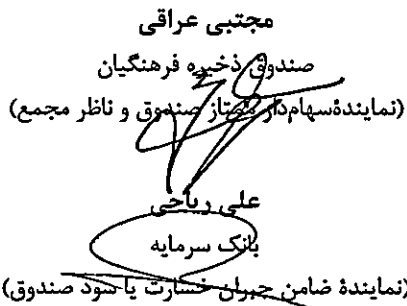 مجتبی عراقی
صندوق ذخیره فرهنگیان
(نمایندهٔ سهام‌دار ممتاز صندوق و ناظر مجمع)
علی ریاحی
بانک سرمایه
(نمایندهٔ ضامن جبران خسارت یا سود صندوق)